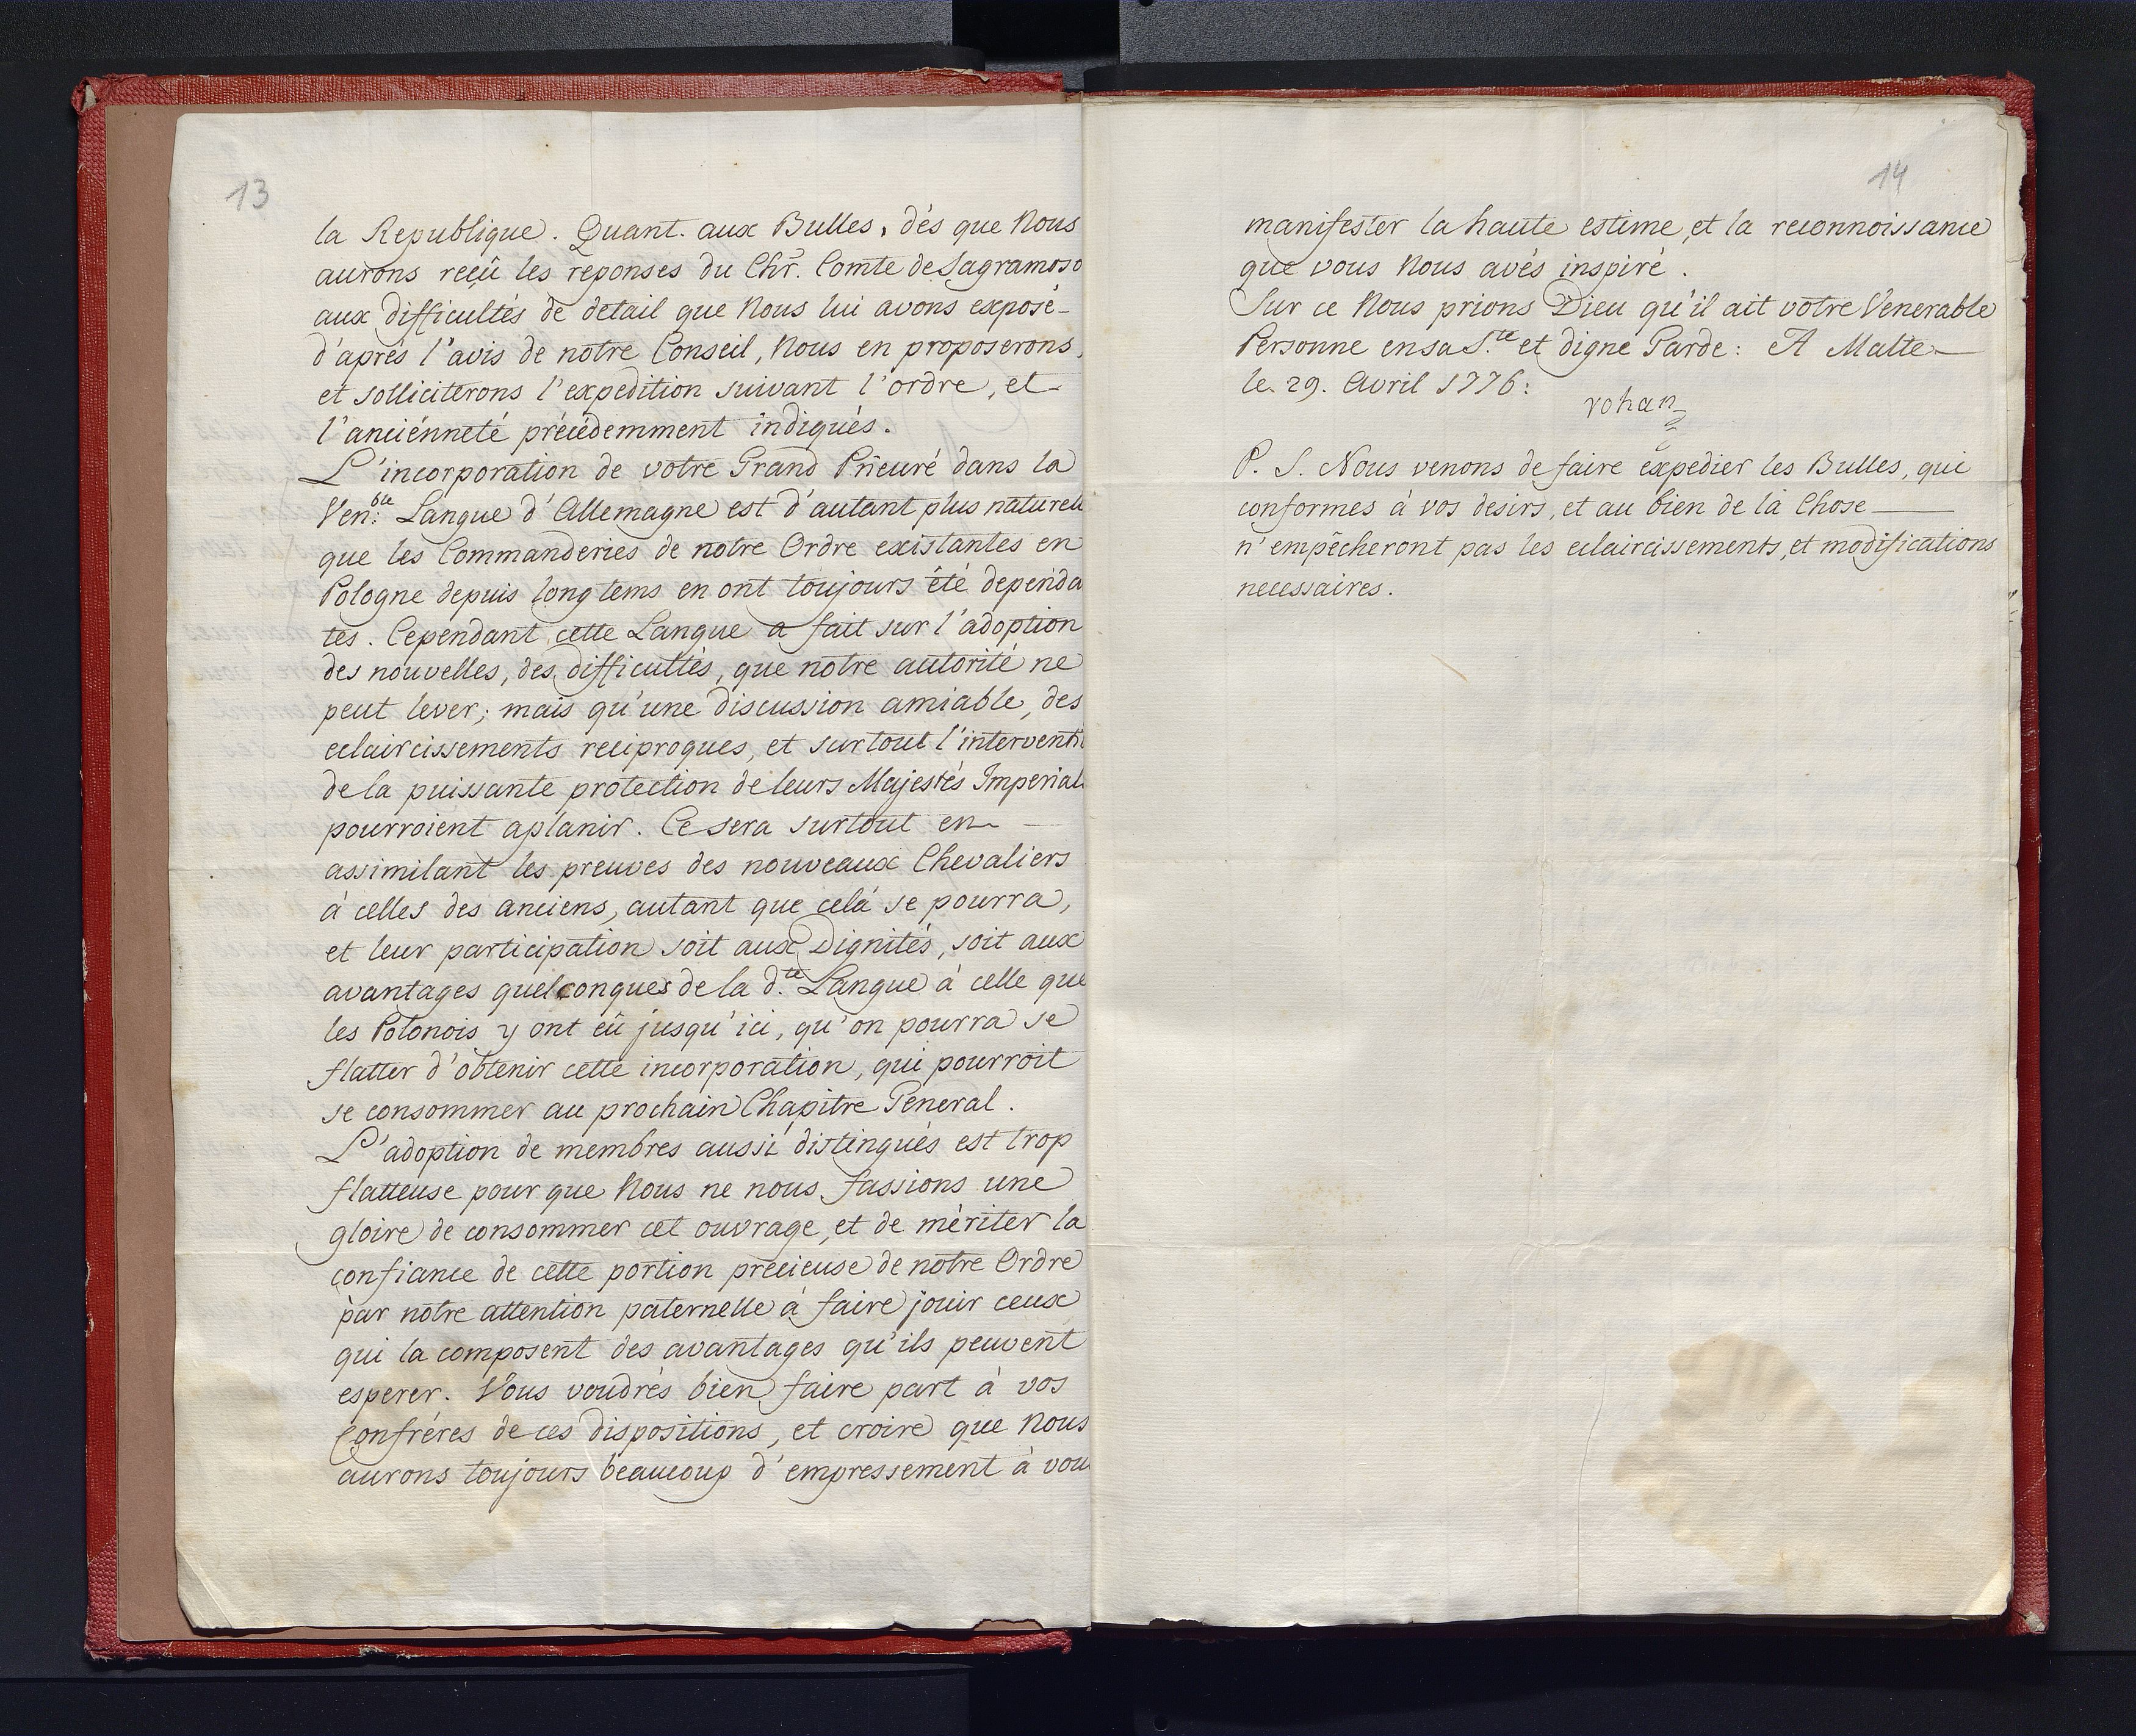 13
la Republique. Quant. aux Bulles, dés que Nous
aurons reçû les reponses du Chr. Comte de Sagramoso
aux difficultés de detail que Nous lui avons exposé-
d'aprés l'avis de notre Conseil, Nous en proposerons,
et solliciterons l'expedition suivant l'ordre, et
l'anciénneté précédemment indiqués.
L'incorporation de votre Grand Prieuré dans la
Ven:ble Langue d'Allemagne est d'autant plus naturell
que les Commanderies de notre Ordre existantes en
Pologne depuis longtems en ont toujours été dependa
tes. Cependant cette Langue a fait sur l'adoption
des nouvelles, des difficultés, que notre autorité ne
peut lever; mais qu'une discussion amiable, des
eclaircissements reciproques, et surtout l'interventi
de la puissante protection de leurs Majestés Imperial
pourroient aplanir. Ce sera surtout en
assimilant les preuves des nouveaux Chevaliers
à celles des anciens, autant que celà se pourra,
et leur participation soit aux Dignités, soit aux
avantages quelconques de la d.te Langue à celle que
les Polonois y ont eû jusqu'ici, qu'on pourra se
flatter d'obtenir cette incorporation, qui pourroit
se consommer au prochain Chapitre General.
L'adoption de membres aussi distingués est trop
flatteuse pour que Nous ne nous fassions une
gloire de consommer cet ouvrage, et de mériter la
confiance de cette portion précieuse de notre Ordre
par notre attention paternelle à faire jouir ceux
qui la composent des avantages qu'ils peuvent
esperer. Vous voudrés bien faire part à vos
Confréres de ces dispositions, et croire que Nous
aurons toujours beaucoup d'empressement à vou
14
manifester la haute estime, et la reconnoissance
que vous Nous avés inspiré.
Sur ce Nous prions Dieu qu'il ait votre Venerable
Personne en sa S.te et digne Garde: A Malte
le 29. Avril 1776:
rohan
P. S. Nous venons de faire expedier les Bulles, qui
conformes à vos desirs, et au bien de la Chose
n'empêcheront pas les eclaircissements, et modifications
necessaires.